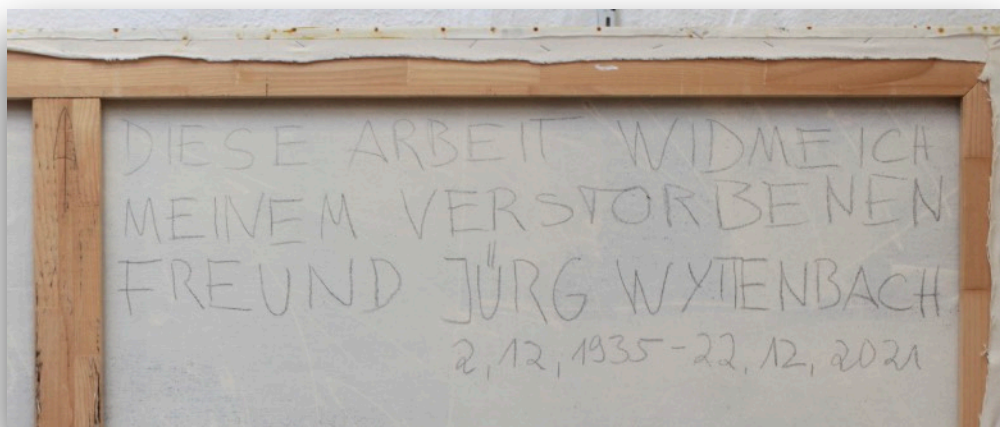 A
DIESE ARBEIT WIDME ICH
MEINEM VERSTORBENEN
FREUND JÜRG WYTTENBACH
2,12,1935-22,12,2021